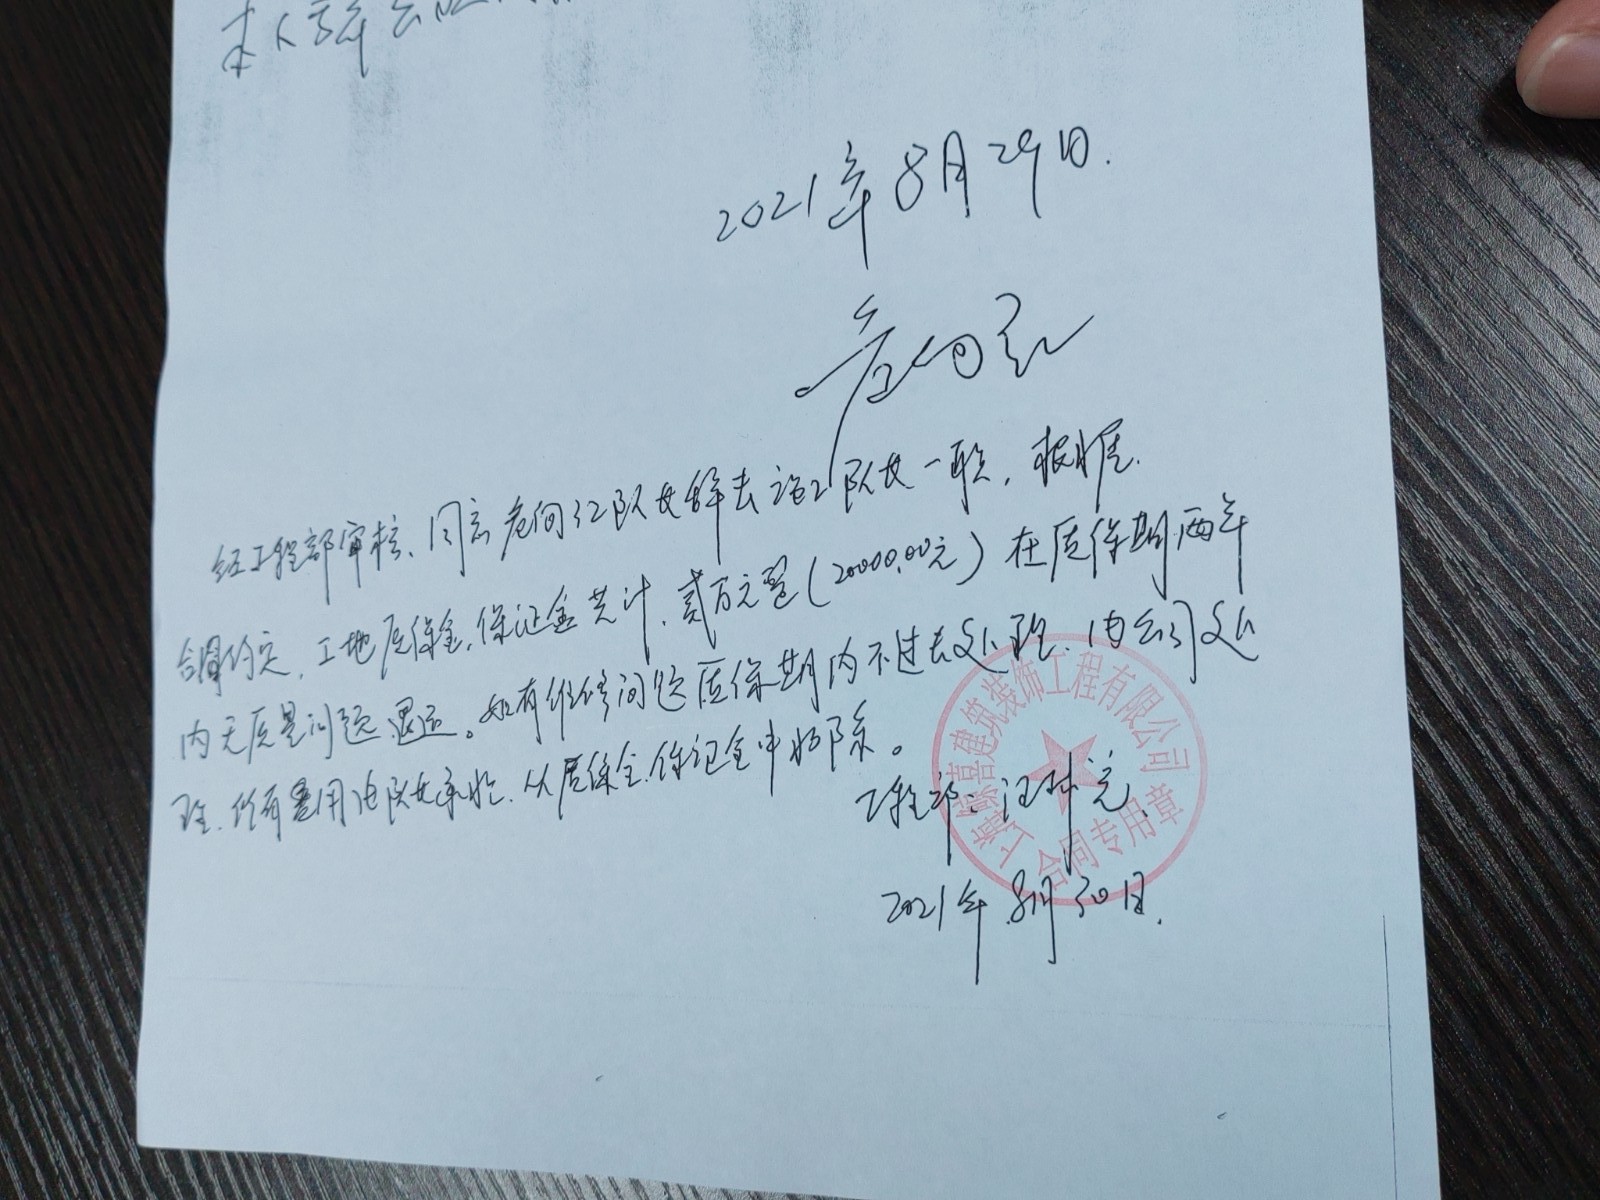 本人辞去
2021年8月29日.
危向红
经工程部审核、同意危向红队长辞去施工队长一职，根据
合同约定，工地质保金，保证金共计，贰万元整（20000.00元）在质保期两年
内无质量问题退还。如有维修问题质保期内不过去处理，由公司处
理，所有费用由队长承担，从质保金、保证金中扣除。
工程部：汪林亮
2021年8月30日.
上海熹建筑装饰工程有限公司
合同专用章